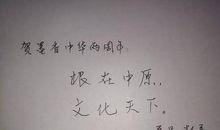 贺墨香中华两周年
根在中原，
文化天下。